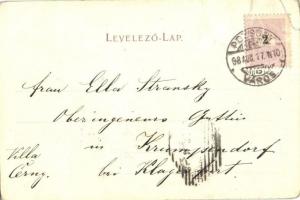 LEVELEZŐ-LAP.
2
98 AUG. 17.
VÁROS
Frau Ella Stransky
Oberingenieurs Gattin
in Krumpendorf
Villa
bei Klagenfurt